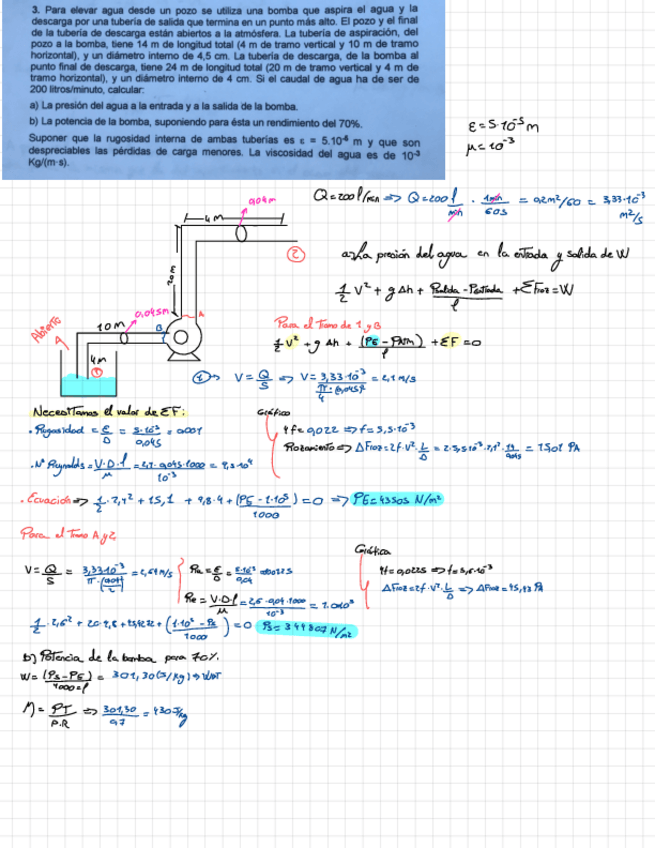 3. Para elevar agua desde un pozo se utiliza una bomba que aspira el agua y la
descarga por una tubería de salida que termina en un punto más alto. El pozo y el final
de la tubería de descarga están abiertos a la atmósfera. La tubería de aspiración, del
pozo a la bomba, tiene 14 m de longitud total (4 m de tramo vertical y 10 m de tramo
horizontal), y un diámetro interno de 4,5 cm. La tubería de descarga, de la bomba al
punto final de descarga, tiene 24 m de longitud total (20 m de tramo vertical y 4 m de
tramo horizontal), y un diámetro interno de 4 cm. Si el caudal de agua ha de ser de
200 litros/minuto, calcular:
a) La presión del agua a la entrada y a la salida de la bomba.
b) La potencia de la bomba, suponiendo para ésta un rendimiento del 70%.
Suponer que la rugosidad interna de ambas tuberías es ε = 5.10⁻⁶ m y que son
despreciables las pérdidas de carga menores. La viscosidad del agua es de 10⁻³
Kg/(m·s).
ε = 5·10⁻⁵ m
μ = 10⁻³
Q = 200 l/min => Q = 200 l/min · 1min/60s = 0,2m²/60 = 3,33·10⁻³ m²/s
0,04m
4m
2
20m
A
0,045m
10m
B
Abierto
4m
1
a) La presión del agua en la entrada y salida de W
1/2 V² + g Δh + (Psalida - Pentrada)/ρ + ΣFroz = W
Para el Tramo de 1 y B
1/2 V² + g Δh + (PE - PATM)/ρ + ΣF = 0
V = Q/S => V = 3,33·10⁻³ = 2,1 m/s
Necesitamos el valor de ΣF:
· Rugosidad = ε/D = = 0,001
0,045
Gráfico
4f = 0,022 => f = 5,5·10⁻³
Rozamiento => ΔFroz = 2f·V²·L/D = = 15,01 PA
· Nº Reynolds = V·D·ρ/μ =
· Ecuación => + 15,1 + 9,8·4 + (PE - 1·10⁵)/1000 = 0 => PE = 43505 N/m²
Para el Tramo A y 2
V = Q/S = = 2,64 m/s
Re = V·D·ρ/μ =
Gráfica
4f = 0,0225 => f = 5,6·10⁻³
ΔFroz = 2f·V²·L/D =>
= 0 Ps = 344807 N/m²
b) Potencia de la bomba para 70%.
W = (Ps - PE)/1000=ρ = 301,30 (J/kg)
η = PT/P.R => 301,30/0,7 = 430 J/kg